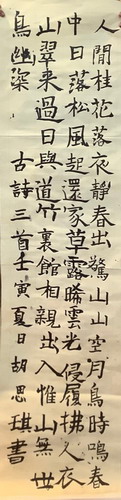 人閒桂花落夜靜春出驚山山空月鳥時鳴春
中日落松風起還家草露晞雲光侵履拂人衣
山翠来過日與道竹裏館相親出入惟山無世
鳥幽深 古詩三首壬寅夏日胡思琪書